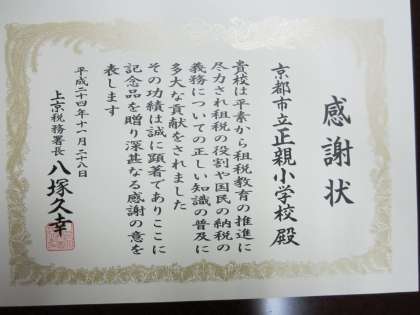 感謝状
京都市立正親小学校殿
貴校は平素から租税教育の推進に
尽力され租税の役割や国民の納税の
義務についての正しい知識の普及に
多大な貢献をされました
その功績は誠に顕著でありここに
記念品を贈り深甚なる感謝の意を
表します
平成二十四年十一月二十八日
上京税務署長 八塚久幸